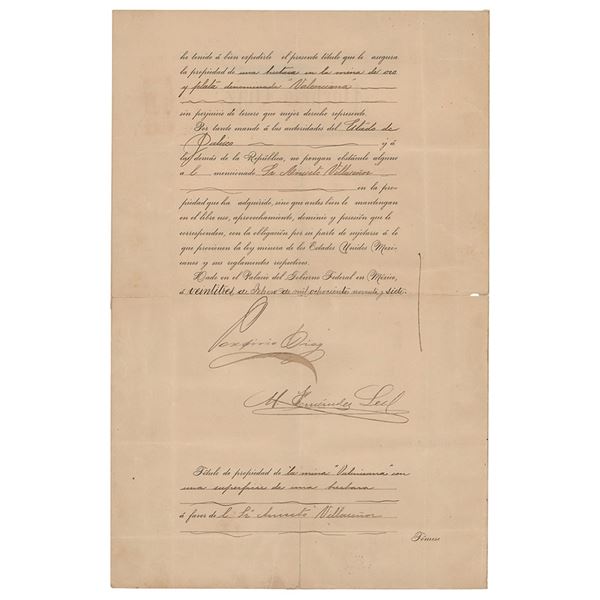 ha tenido á bien expedirle el presente título que le asegura
la propiedad de una hectara en la mina de oro
y plata denominada "Valenciana"
sin perjuicio de tercero que mejor derecho represente.
Por tanto mando á las autoridades del Estado de
Jalisco y á
las demás de la República, no pongan obstáculo alguno
a l mencionado Sr Aniceto Villaseñor
en la pro-
piedad que ha adquirido, sino que antes bien le mantengan
en el libre uso, aprovechamiento, dominio y posesión que le
corresponden, con la obligación por su parte de sujetarse á lo
que previenen la ley minera de los Estados Unidos Mexi-
canos y sus reglamentos respectivos.
Dado en el Palacio del Gobierno Federal en México,
á veintitres de Febrero de mil ochociento noventa y siete.
Porfirio Diaz
M Fernández Leal
Título de propiedad de "la mina "Valenciana" con
una superficie de una hectara
á favor de l Sr Aniceto Villaseñor
Tómese